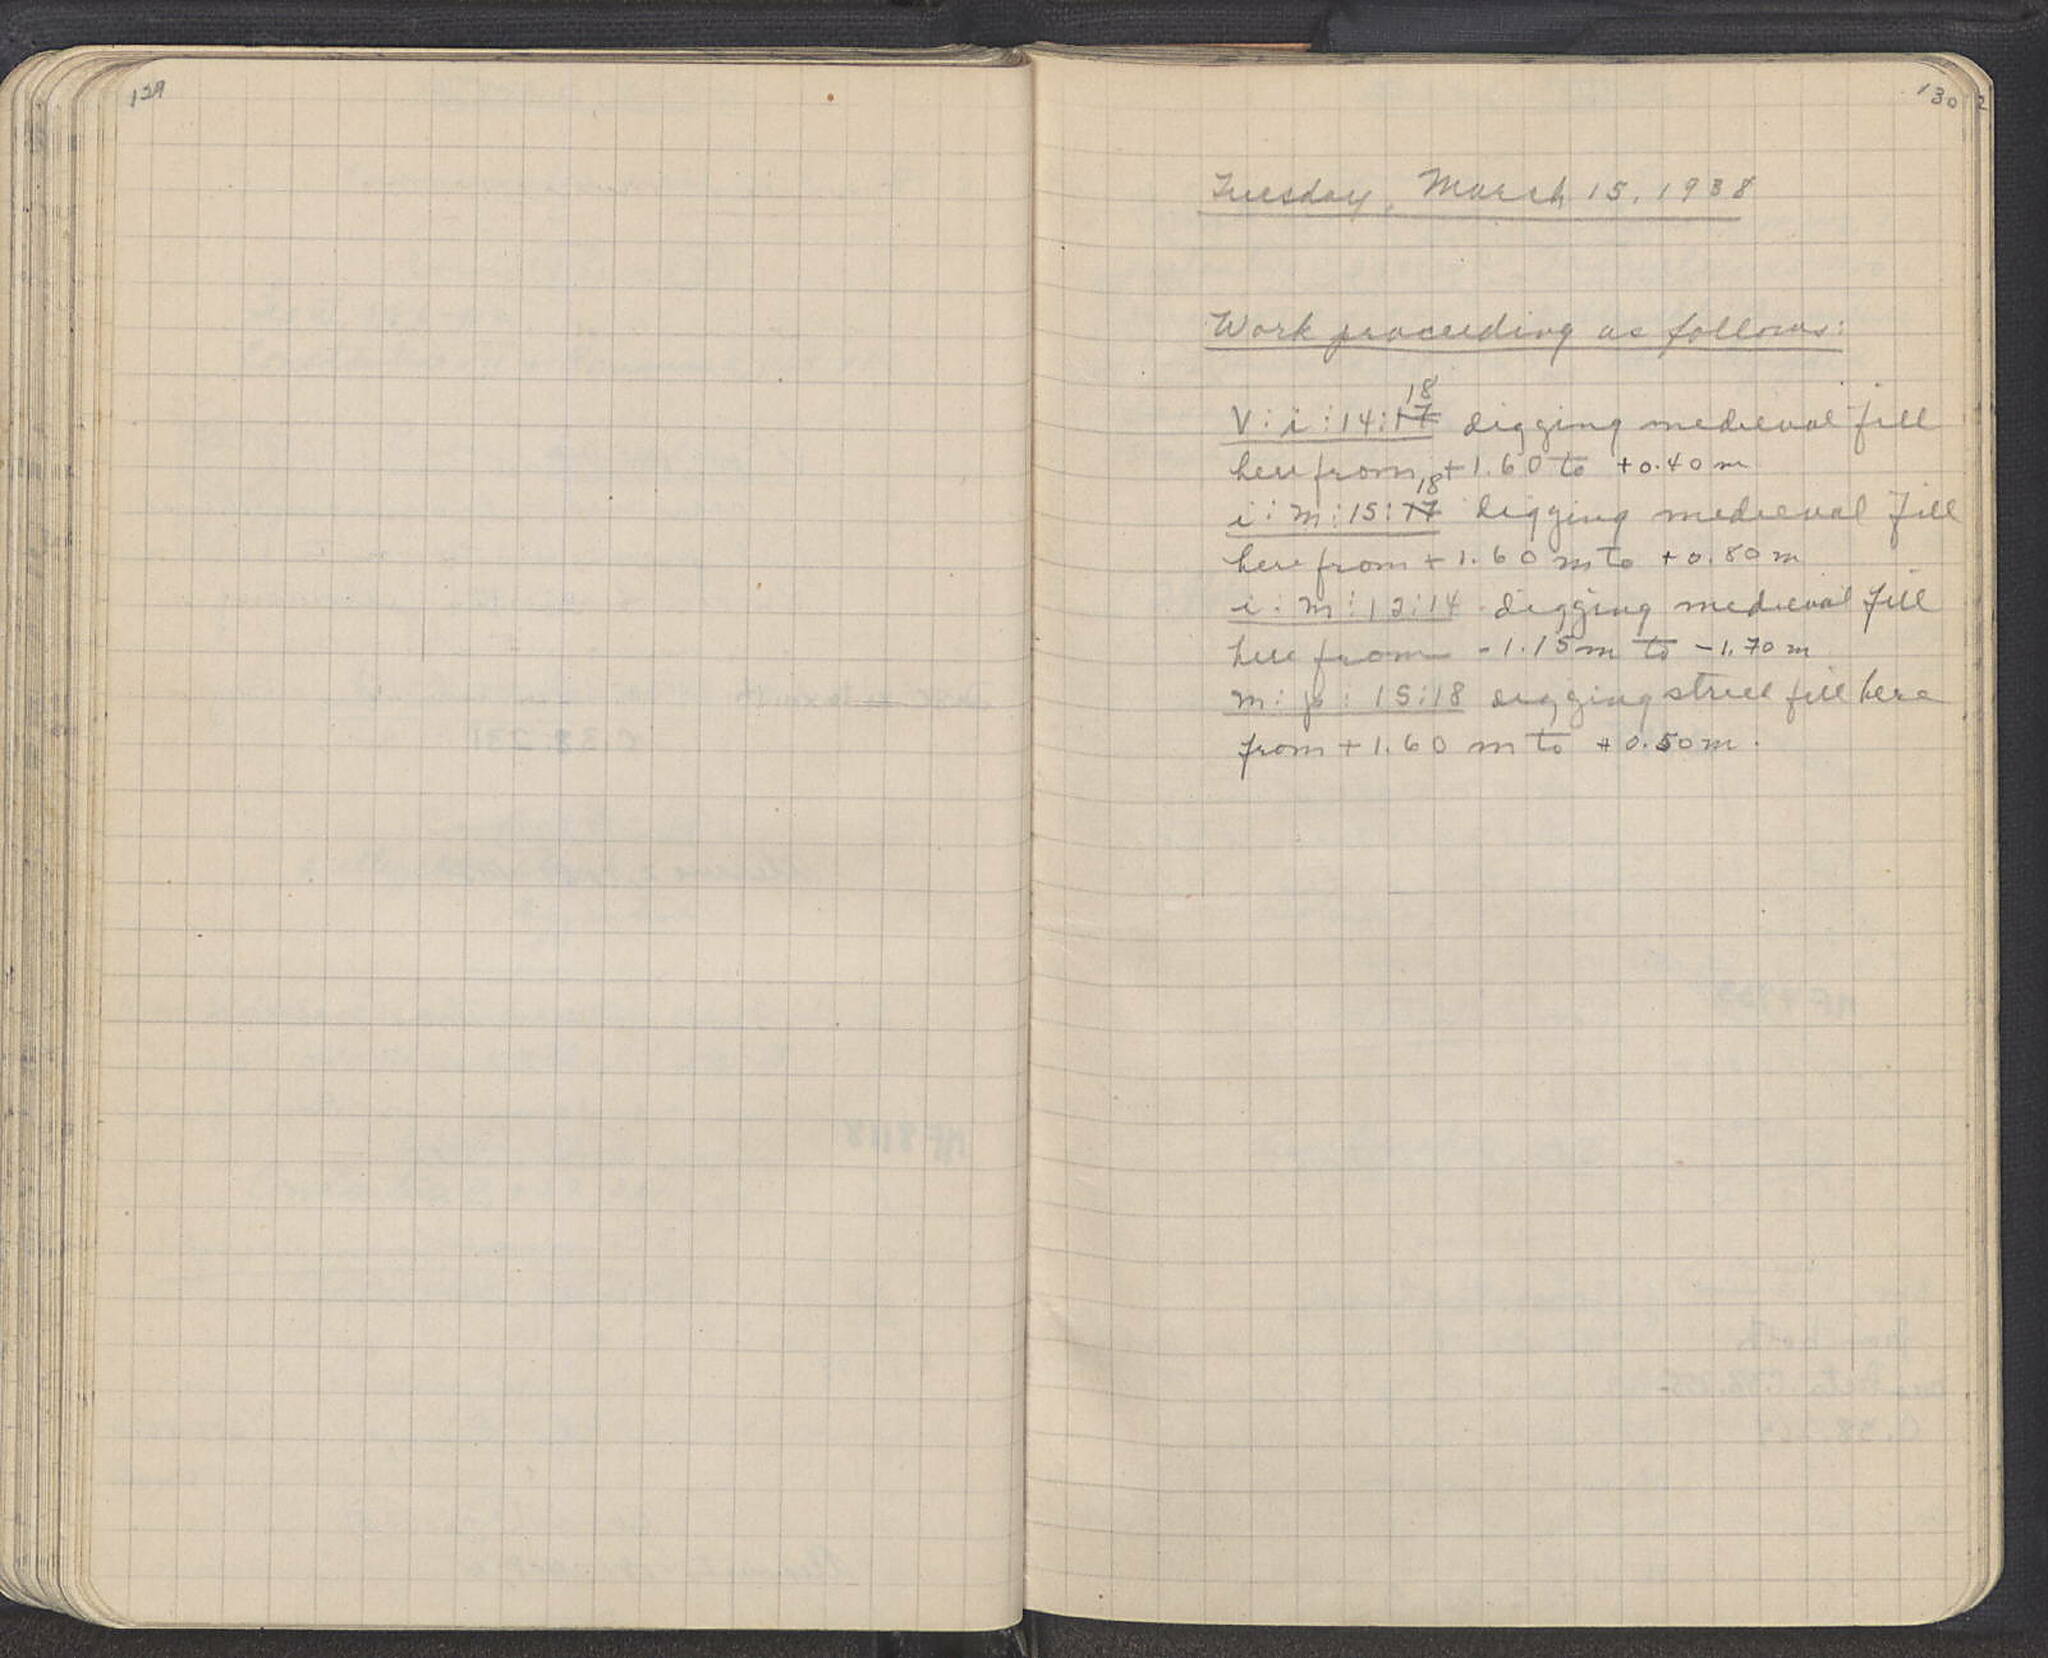 129
130
Tuesday, March 15, 1938
Work proceeding as follows:
18
V: i: 14: 17 digging medieval fill
here from +1.60 to +0.40 m
18
i: m: 15: 17 digging medieval fill
here from +1.60 m to +0.80 m
i: m: 12:14 digging medieval fill
here from -1.15 m to -1.70 m
m: p: 15:18 digging street fill here
from +1.60 m to +0.50 m.